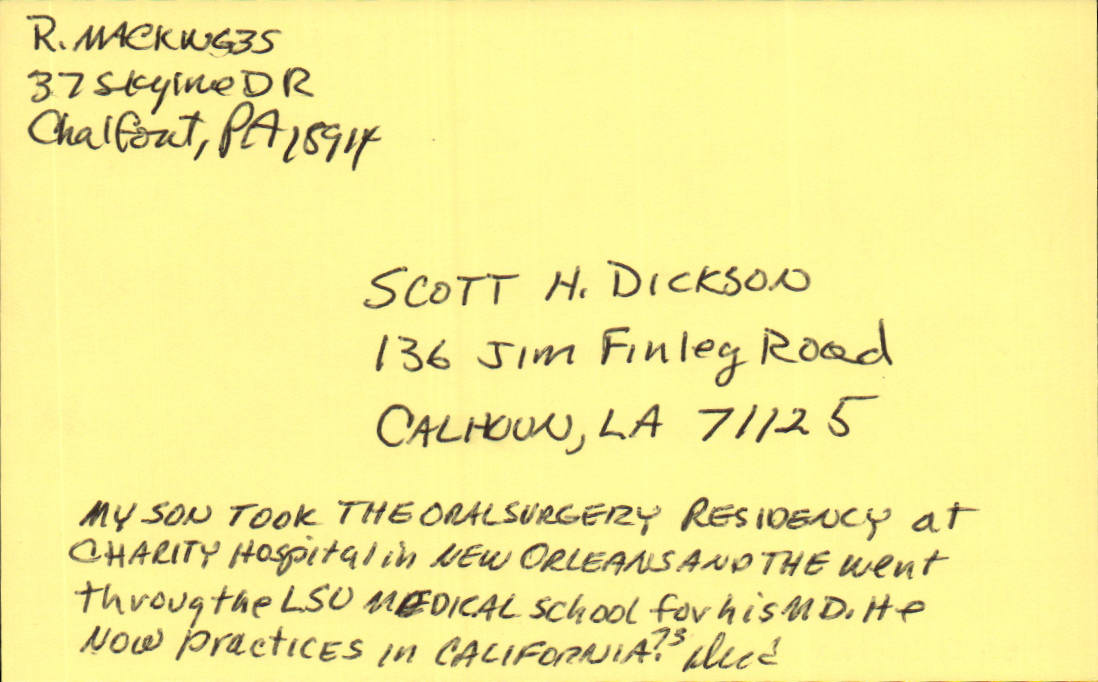 R. MACK W3GS
37 Skyline DR
Chalfont, PA 18914
SCOTT H. DICKSON
136 Jim Finley Road
CALHOUN, LA 71125
MY SON TOOK THE ORAL SURGERY RESIDENCY at
CHARITY Hospital in NEW ORLEANS AND THE went
through the LSU MEDICAL School for his MD. He
NOW practices in CALIFORNIA. 73